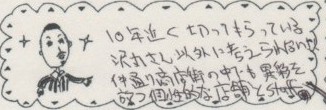 10年近く切ってもらっている
沢れさん以外に考えられない!!
仲通り商店街の中でも異彩を
放つ個性的な店舗と